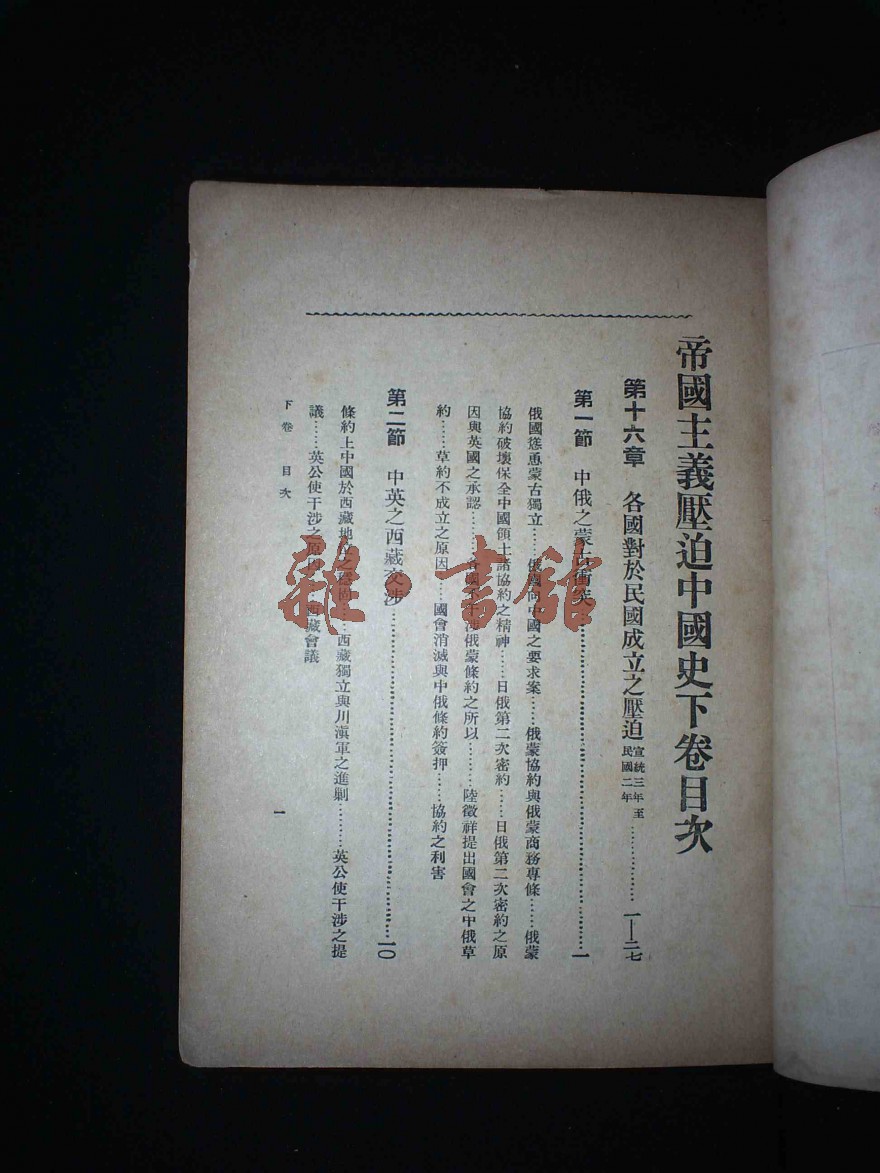 帝國主義壓迫中國史下卷目次
第十六章 各國對於民國成立之壓迫 宣統三年至民國二年………………一—二七
第一節 中俄之蒙古衝突………………一
俄國慫恿蒙古獨立……俄國向中國之要求案……俄蒙協約與俄蒙商務專條……俄蒙
協約破壞保全中國領土諸協約之精神……日俄第二次密約……日俄第二次密約之原
因與英國之承認……各國不干涉俄蒙條約之所以……陸徵祥提出國會之中俄草
約……草約不成立之原因……國會消滅與中俄條約簽押……協約之利害
第二節 中英之西藏交涉………………一〇
條約上中國於西藏地位之……西藏獨立與川滇軍之進剿……英公使干涉之提
議……英公使干涉之原因……西藏會議
下卷 目次
一
雜·書館